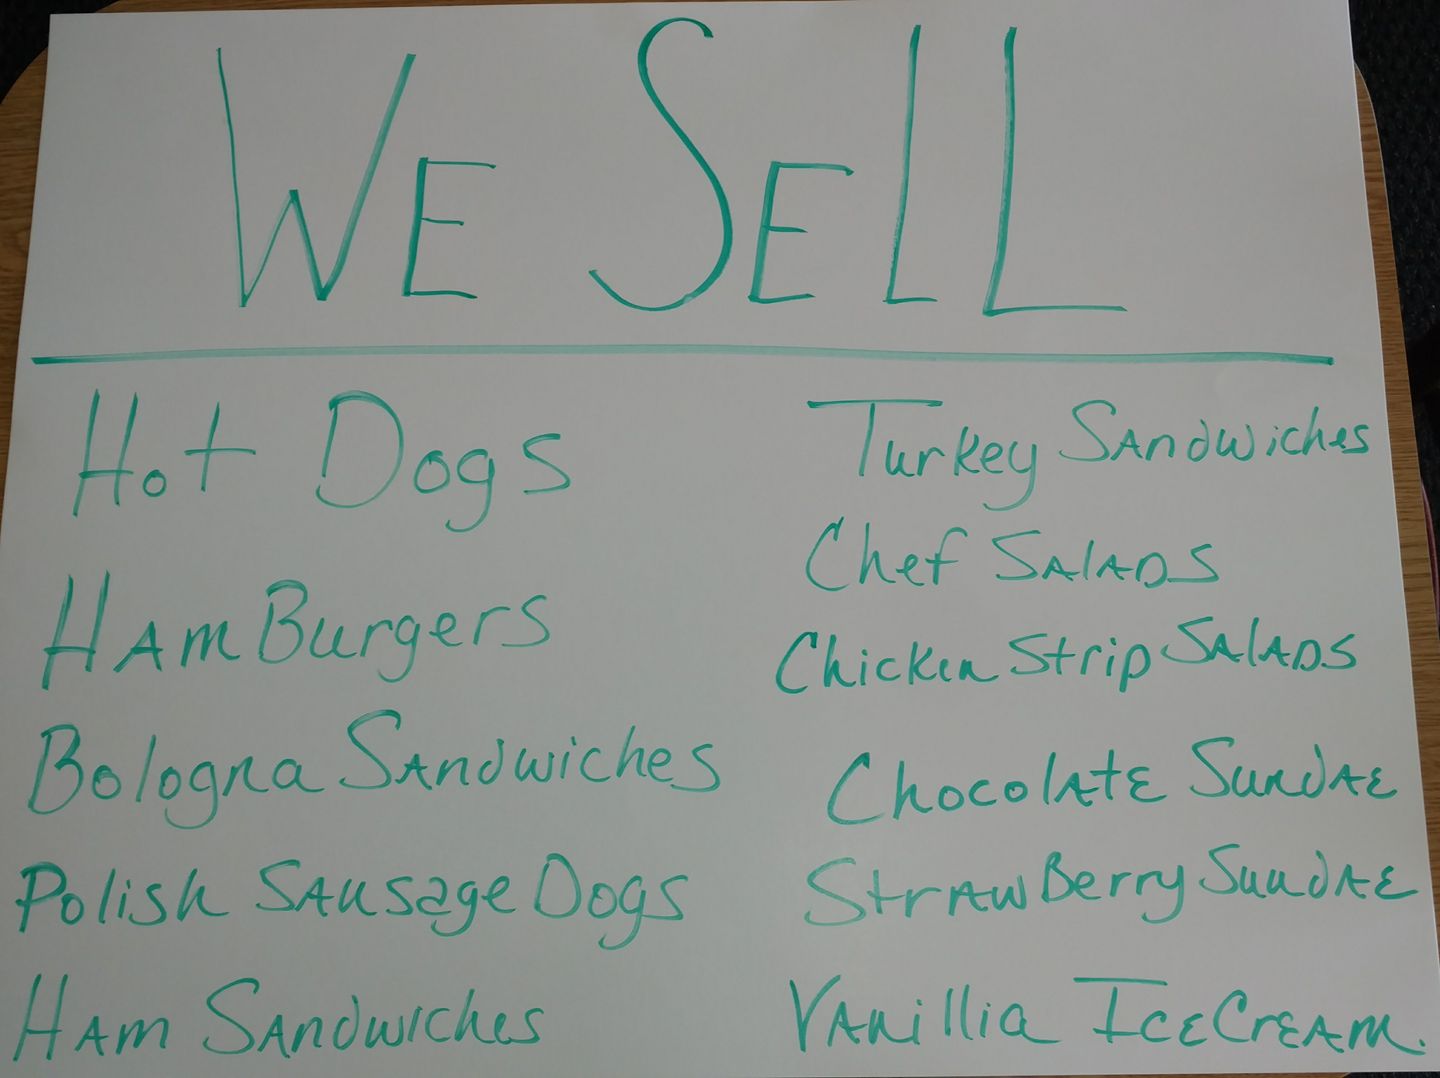 WE SELL
Hot Dogs
HAmBurgers
Bologna SAndwiches
Polish SAusage Dogs
HAm SAndwiches
Turkey SAndwiches
Chef SAlADS
Chicken Strip SAlADS
ChocolAtE SundAE
StrAwBerry SundAE
VAnillia IcECrEAm.